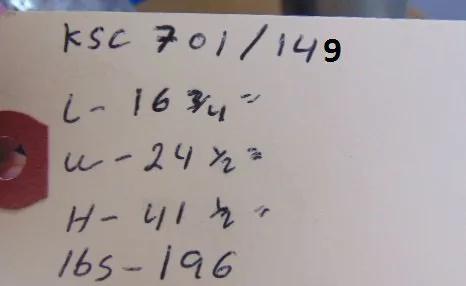 KSC 701/149
L- 16 3/4"
W- 24 1/2"
H- 41 1/2"
lbs- 196